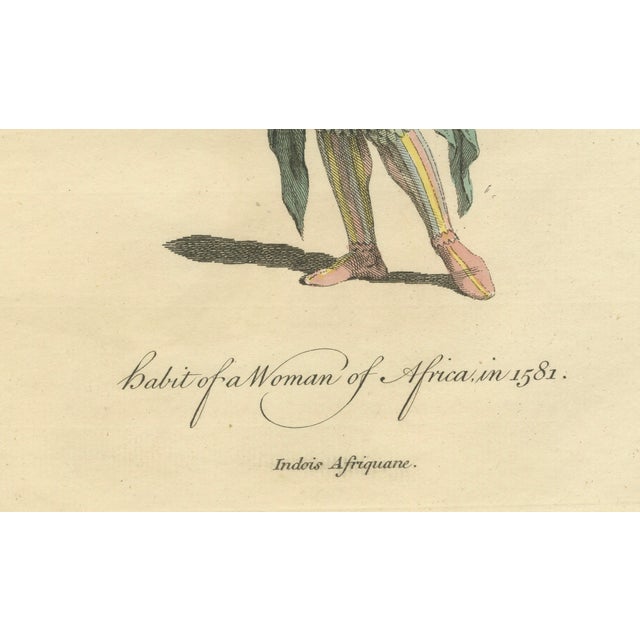 Habit of a Woman of Africa, in 1581.
Indois Afriquane.